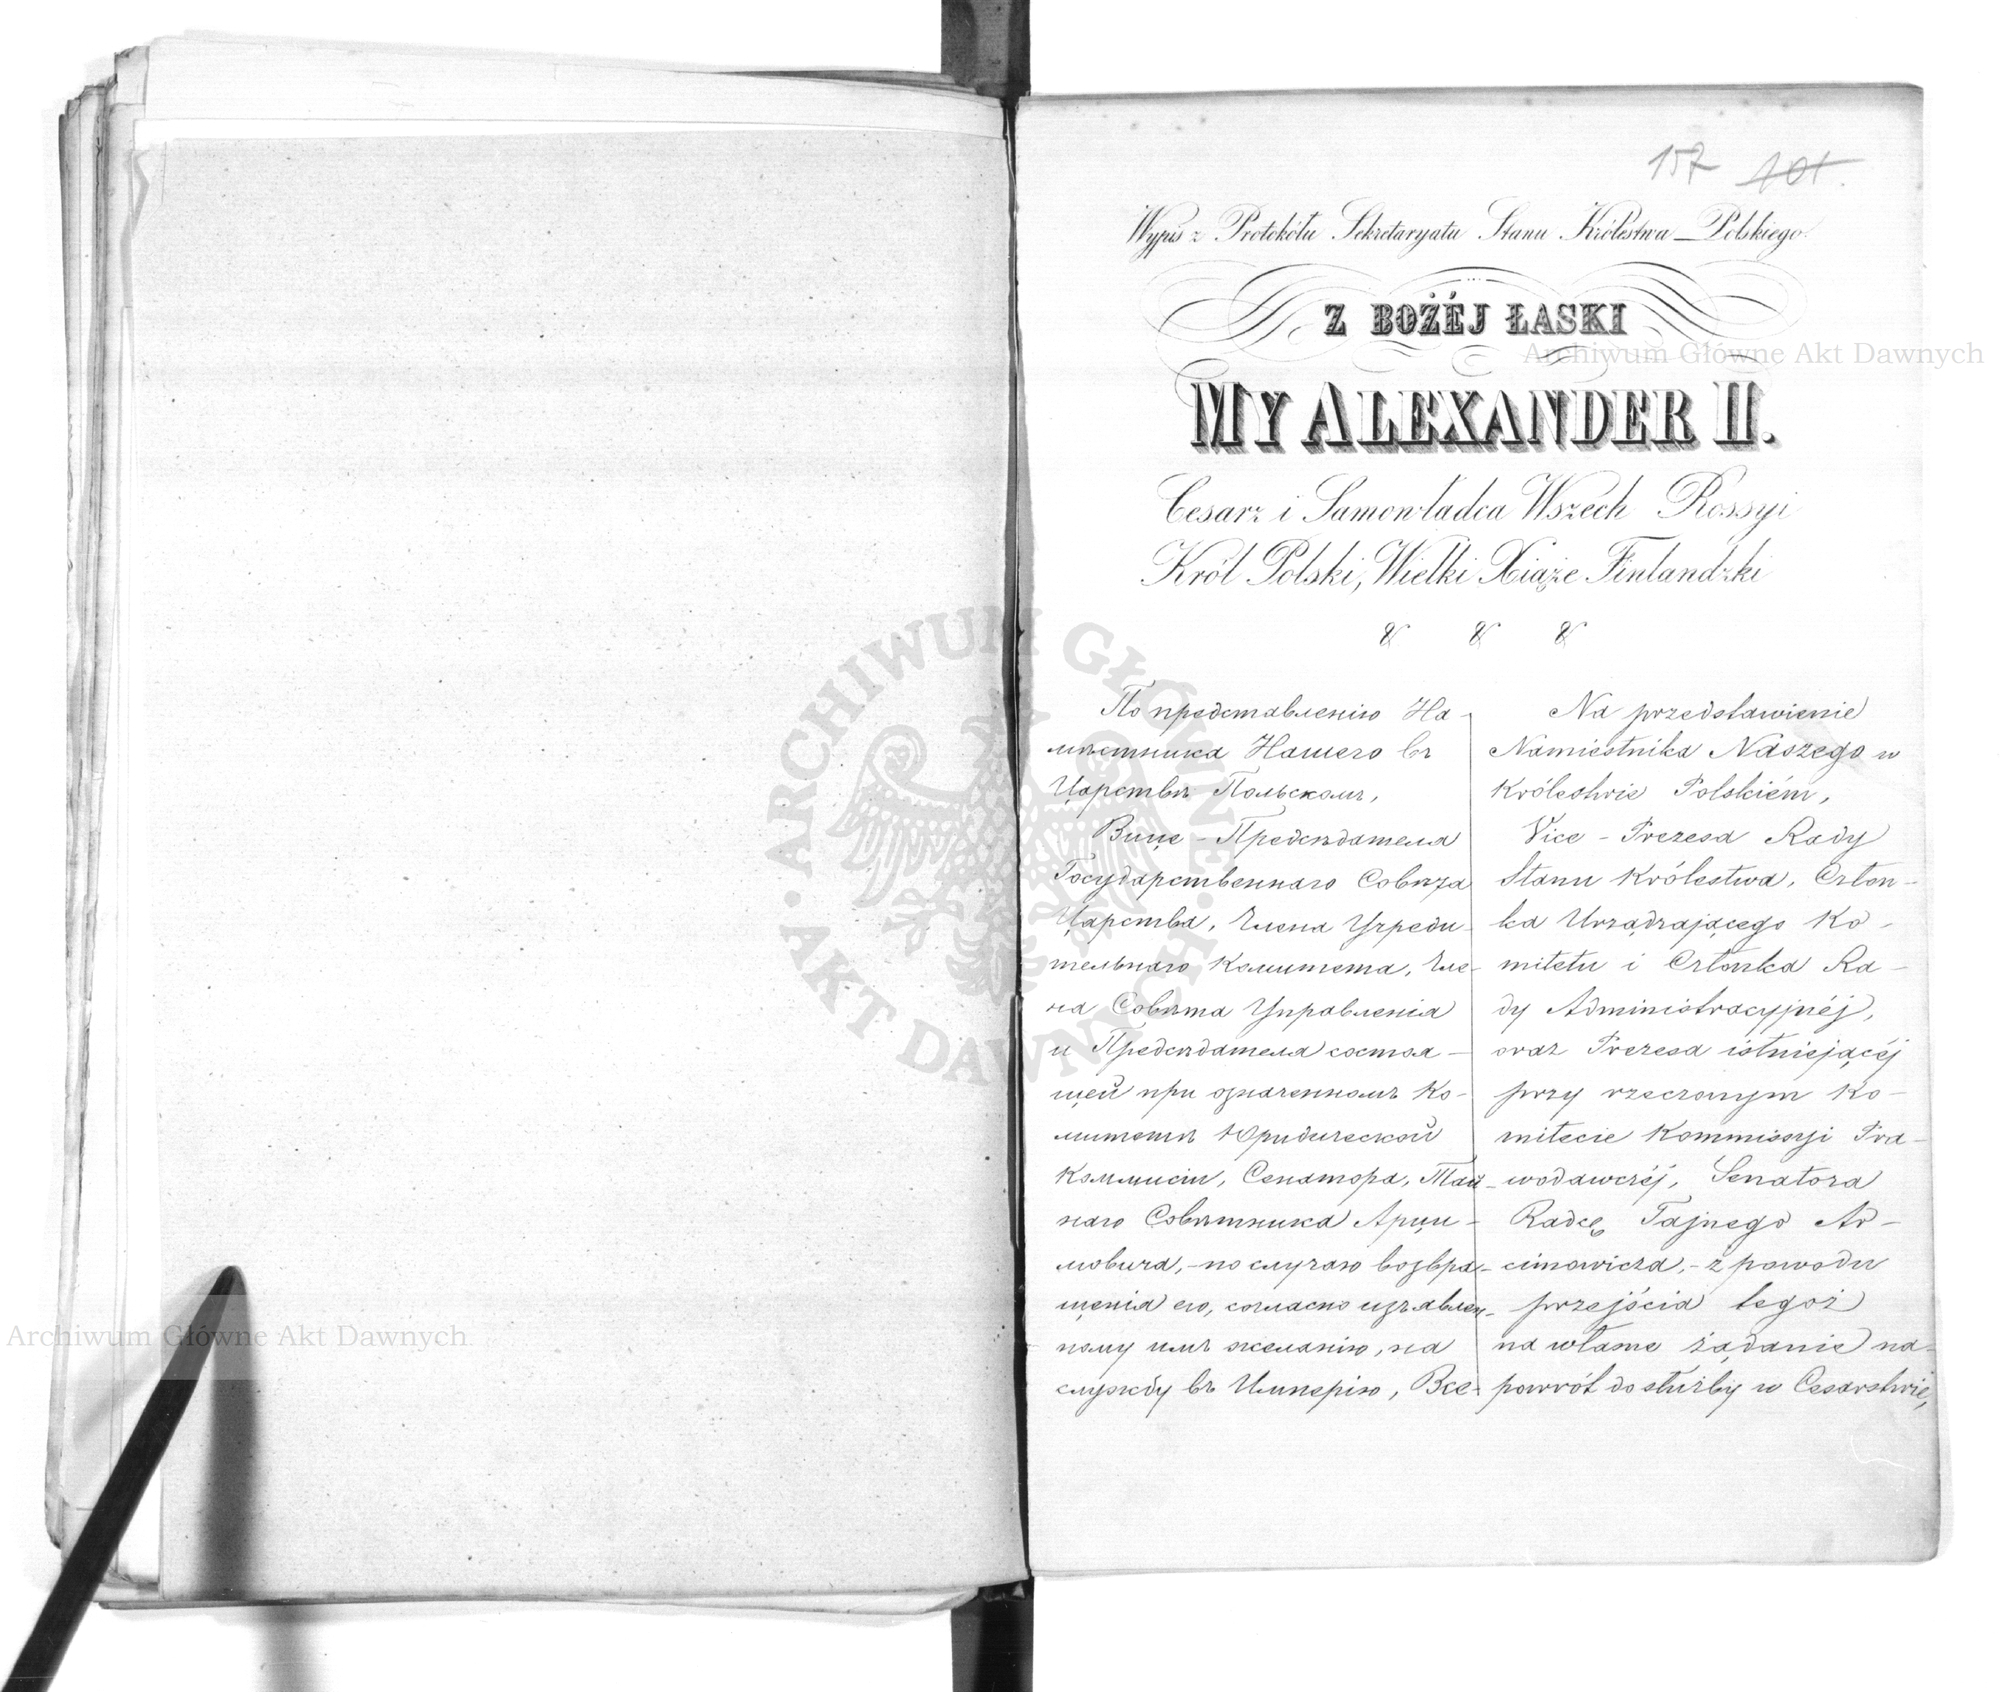 157 101.
Wypis z Protokółu Sekretaryatu Stanu Królestwa Polskiego.
Z BOŻÉJ ŁASKI
MY ALEXANDER II.
Cesarz i Samowładca Wszech Rossyi
Król Polski, Wielki Xiąże Finlandzki
& & &
По представленію На-
мѣстника Нашего въ
Царствѣ Польскомъ,
Вице-Предсѣдателя
Государственнаго Совѣта
Царства, Члена Учреди-
тельнаго Комитета, Чле-
на Совѣта Управленія
и Предсѣдателя состоя-
щей при означенномъ Ко-
митетѣ Юридической
Коммисіи, Сенатора, Тай-
наго Совѣтника Арци-
мовича,- по случаю возвра-
щенія его, согласно изъявлен-
ному имъ желанію, на
службу въ Имперію, Все-
Na przedstawienie
Namiestnika Naszego w
Królestwie Polskiém,
Vice-Prezesa Rady
Stanu Królestwa, Człon-
ka Urządzającego Ko-
mitetu i Członka Ra-
dy Administracyjnéj,
oraz Prezesa istniejącéj
przy rzeczonym Ko-
mitecie Kommissyi Pra-
wodawczéj, Senatora
Radcę Tajnego Ar-
cimowicza,- z powodu
przejścia tegoż
na własne żądanie na-
powrót do służby w Cesarstwie,
Archiwum Główne Akt Dawnych
Archiwum Główne Akt Dawnych
ARCHIWUM GŁÓWNE AKT DAWNYCH